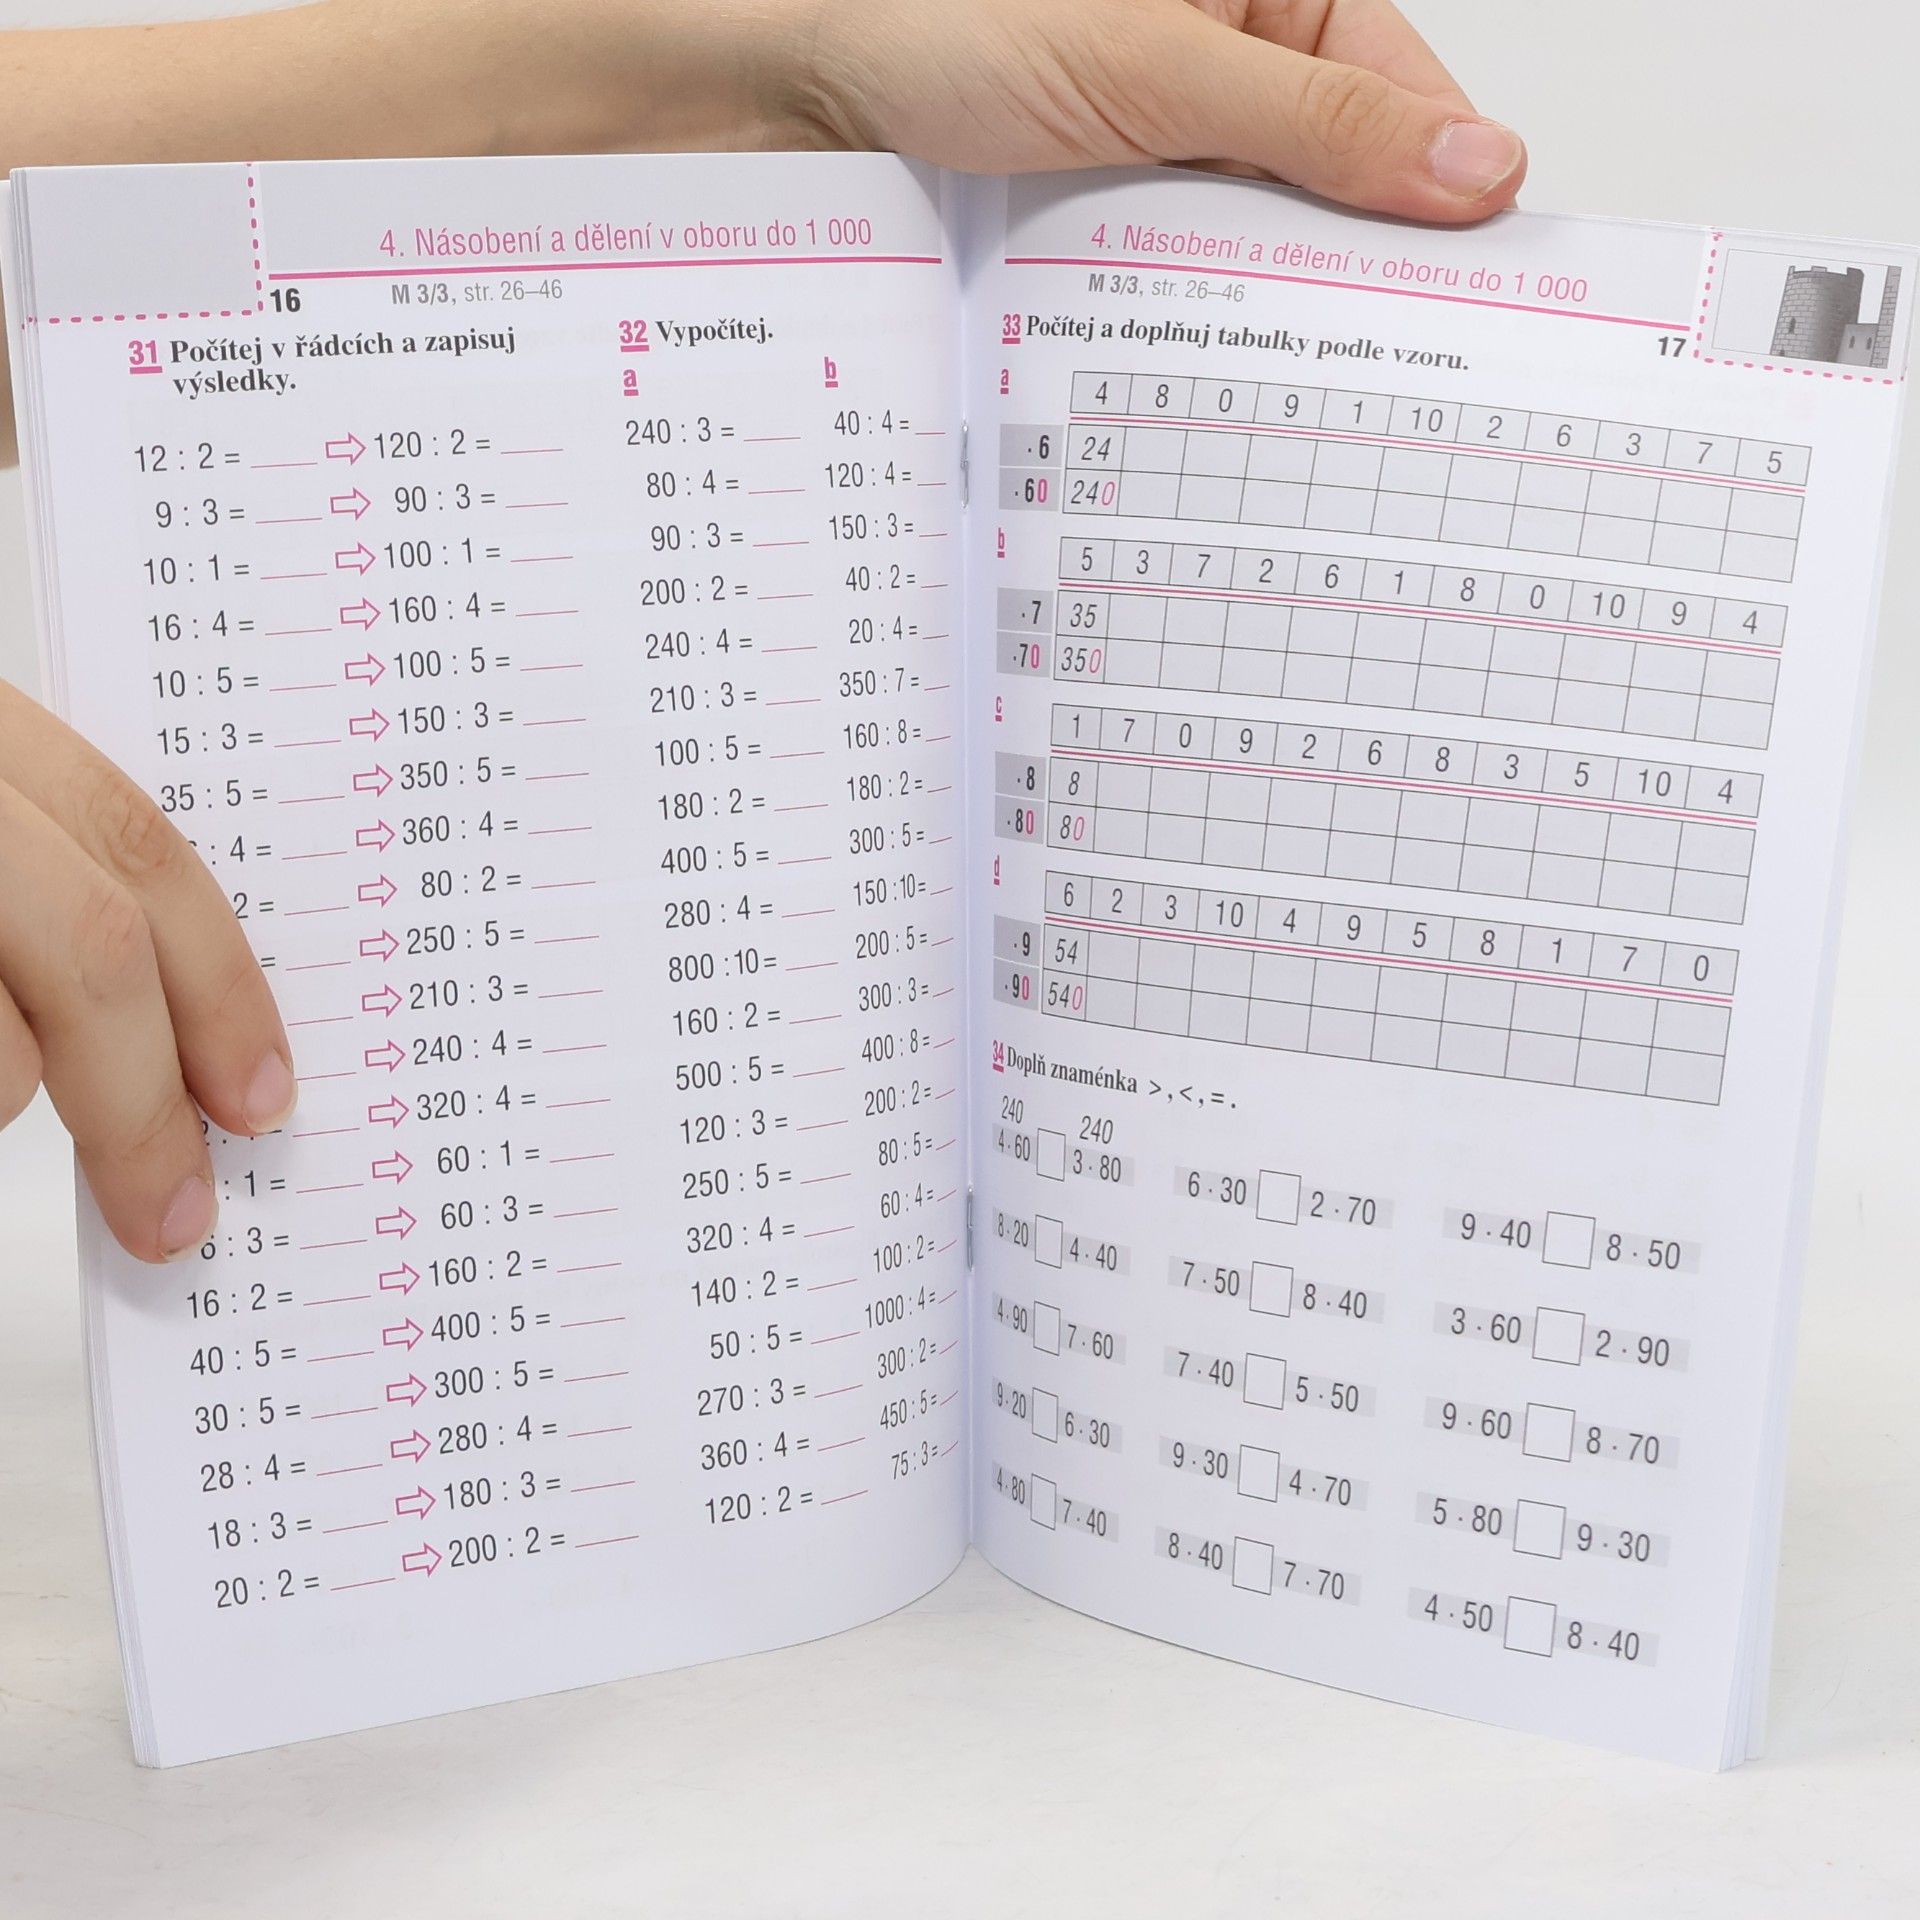 4. Násobení a dělení v oboru do 1 000
16 M 3/3, str. 26–46
31 Počítej v řádcích a zapisuj
výsledky.
12 : 2 = ____ ⇨ 120 : 2 = ____
9 : 3 = ____ ⇨ 90 : 3 = ____
10 : 1 = ____ ⇨ 100 : 1 = ____
16 : 4 = ____ ⇨ 160 : 4 = ____
10 : 5 = ____ ⇨ 100 : 5 = ____
15 : 3 = ____ ⇨ 150 : 3 = ____
35 : 5 = ____ ⇨ 350 : 5 = ____
: 4 = ____ ⇨ 360 : 4 = ____
2 = ____ ⇨ 80 : 2 = ____
= ____ ⇨ 250 : 5 = ____
____ ⇨ 210 : 3 = ____
____ ⇨ 240 : 4 = ____
____ ⇨ 320 : 4 = ____
: 1 = ____ ⇨ 60 : 1 = ____
6 : 3 = ____ ⇨ 60 : 3 = ____
16 : 2 = ____ ⇨ 160 : 2 = ____
40 : 5 = ____ ⇨ 400 : 5 = ____
30 : 5 = ____ ⇨ 300 : 5 = ____
28 : 4 = ____ ⇨ 280 : 4 = ____
18 : 3 = ____ ⇨ 180 : 3 = ____
20 : 2 = ____ ⇨ 200 : 2 = ____
32 Vypočítej.
a
240 : 3 = ____
80 : 4 = ____
90 : 3 = ____
200 : 2 = ____
240 : 4 = ____
210 : 3 = ____
100 : 5 = ____
180 : 2 = ____
400 : 5 = ____
280 : 4 = ____
800 :10= ____
160 : 2 = ____
500 : 5 = ____
120 : 3 = ____
250 : 5 = ____
320 : 4 = ____
140 : 2 = ____
50 : 5 = ____
270 : 3 = ____
360 : 4 = ____
120 : 2 = ____
b
40 : 4 = __
120 : 4 = __
150 : 3 = __
40 : 2 = __
20 : 4 = __
350 : 7 = __
160 : 8 = __
180 : 2 = __
300 : 5 = __
150 :10= __
200 : 5 = __
300 : 3 = __
400 : 8 = __
200 : 2 = __
80 : 5 = __
60 : 4 = __
100 : 2 = __
1000 : 4 = __
300 : 2 = __
450 : 5 = __
75 : 3 = __
4. Násobení a dělení v oboru do 1 000
M 3/3, str. 26–46 17
33 Počítej a doplňuj tabulky podle vzoru.
a
4 8 0 9 1 10 2 6 3 7 5
· 6 24
· 60 240
b
5 3 7 2 6 1 8 0 10 9 4
· 7 35
· 70 350
c
1 7 0 9 2 6 8 3 5 10 4
· 8 8
· 80 80
d
6 2 3 10 4 9 5 8 1 7 0
· 9 54
· 90 540
34 Doplň znaménka > , < , = .
240 240
4 · 60 □ 3 · 80
8 · 20 □ 4 · 40
4 · 90 □ 7 · 60
9 · 20 □ 6 · 30
4 · 80 □ 7 · 40
6 · 30 □ 2 · 70
7 · 50 □ 8 · 40
7 · 40 □ 5 · 50
9 · 30 □ 4 · 70
8 · 40 □ 7 · 70
9 · 40 □ 8 · 50
3 · 60 □ 2 · 90
9 · 60 □ 8 · 70
5 · 80 □ 9 · 30
4 · 50 □ 8 · 40